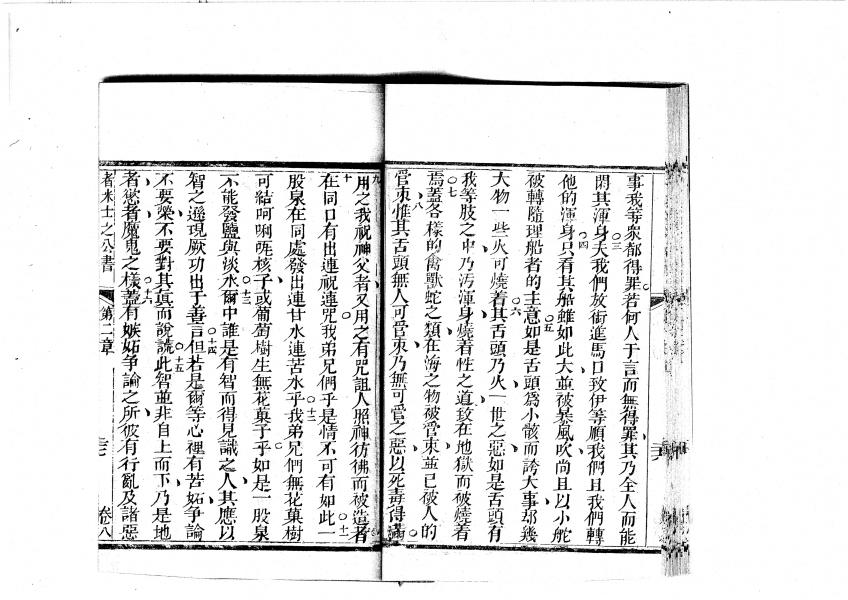 事我等衆都得罪若何人于言而無得罪其乃全人而能
閑其渾身○三夫我們放銜進馬口致伊等順我們且我們轉
他的渾身○四只看其船雖如此大並被暴風吹尚且以小舵
破轉隨理船者的主意○五如是舌頭爲小骸而誇大事却幾
大物一些火可燒着○六其舌頭乃火一世之惡如是舌頭有
我等肢之中乃汚渾身燒着性之道致在地獄而破燒着
焉○七蓋各樣的禽獸蛇之類在海之物破管束並已破人的
管束○八惟其舌頭無人可管束乃無可管之惡以死毒得滿
○九用之我祝神父者又用之有咒詛人照神彷彿而被造者
○十在同口有出連祝連咒我弟兄們乎是情不可有如此○十一一
股泉在同處發出連甘水連苦水乎○十二我弟兄們無花菓樹
可結呵唎㕵核子或葡萄樹生無花菓子乎如是一股泉
不能發鹽與淡水○十三爾中誰是有智而得見識之人其應以
智之遜現厥功出于善言○十四但若是爾等心裡有苦妬爭論
不要榮不要對其眞而說謊○十五此智並非自上而下乃是地
者慾者魔鬼之樣○十六蓋有嫉妬爭論之所彼有行亂及諸惡
者米士之公書 第二章 三 卷八